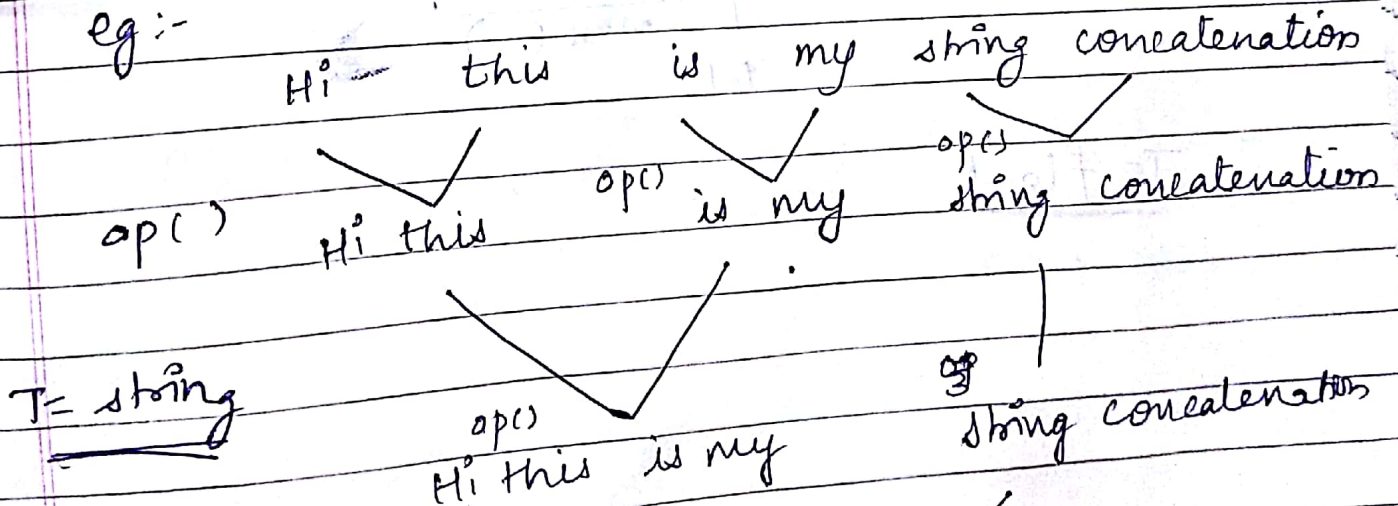 eg :-
Hi this is my string concatenation
op() op() op()
Hi this is my string concatenation
T= string
op()
Hi this is my string concatenation